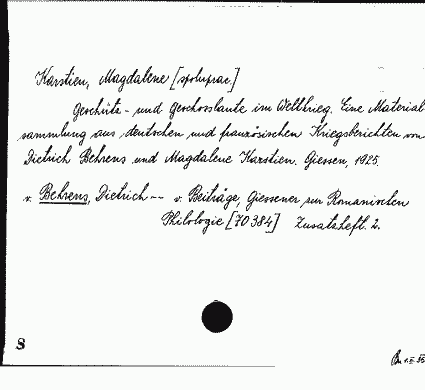 Karstien, Magdalene [spoluprac.]
Geschütz- und Geschosslaute im Weltkrieg. Eine Material-
sammlung aus deutschen und französischen Kriegsberichten von
Dietrich Behrens und Magdalene Karstien. Giessen, 1925.
v. Behrens, Dietrich -- v. Beiträge, Giessener zur Romanischen
Philologie [70384] Zusatzheft. 2.
S